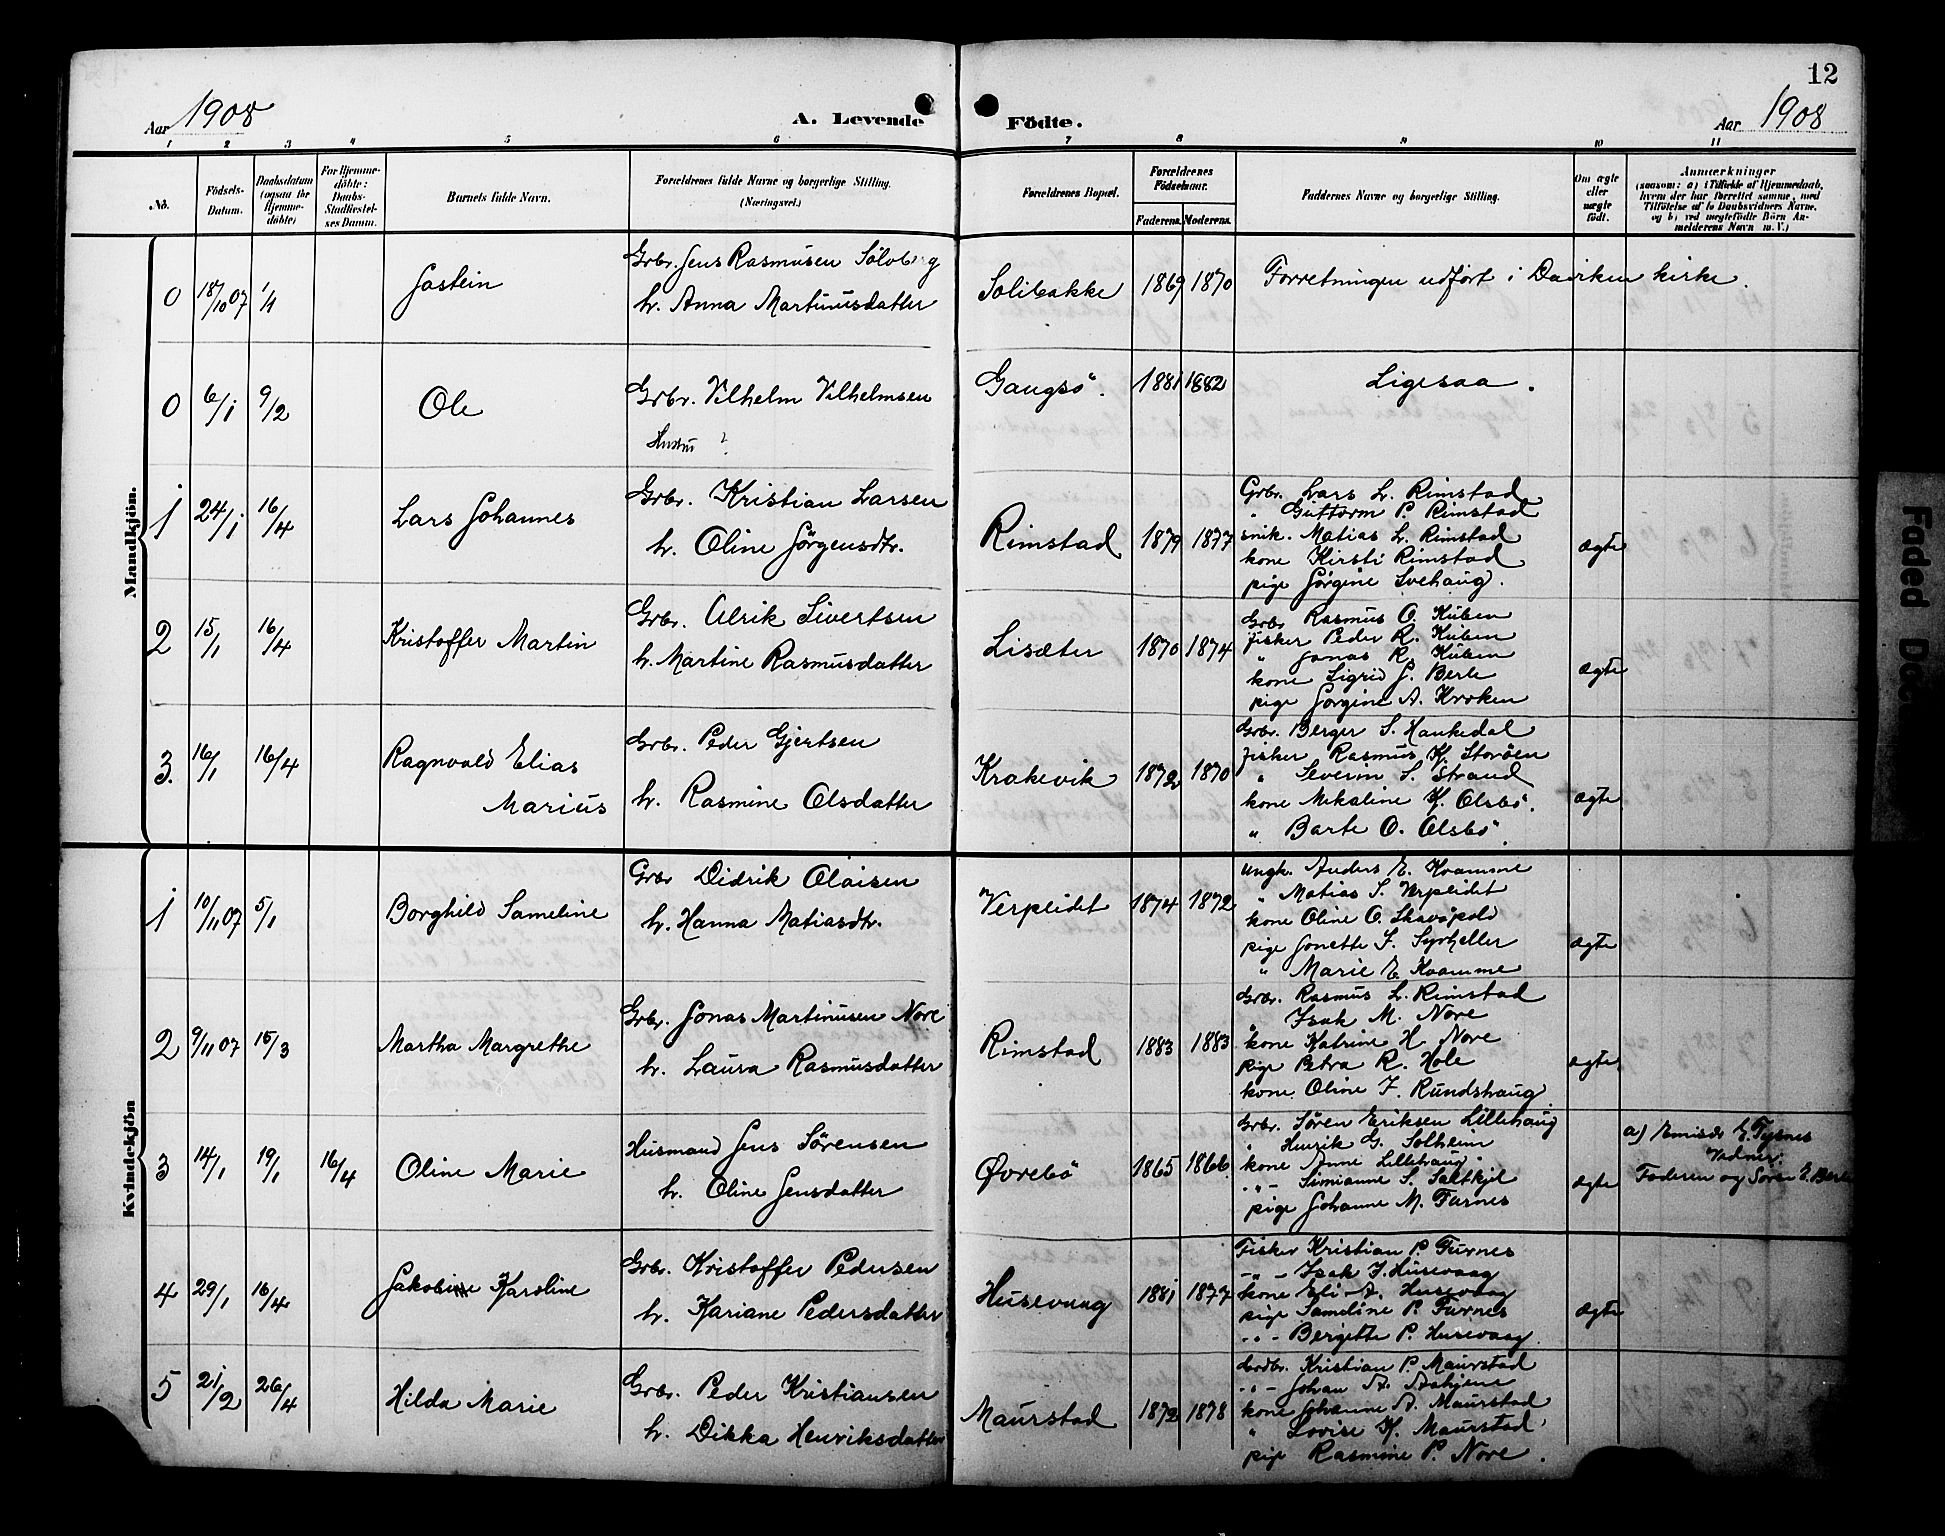 12
Aar 1908
A. Levende Födte.
Aar 1908
1 2 3 4 5 6 7 8 9 10 11
No.
Födsels-
Datum.
Daabsdatum
(ogsaa for
Hjemme-
döbte)
For Hjemme-
döbte:
Daabs-
Stadfæstel-
ses Datum.
Barnets fulde Navn.
Forældrenes fulde Navne og borgerlige Stilling.
(Næringsvei.)
Forældrenes Bopæl.
Forældrenes
Födselsaar.
Faderens. Moderens.
Faddernes Navne og borgerlige Stilling.
Om ægte
eller
uægte
födt.
Anmærkninger
(saasom: a) i Tilfælde af Hjemmedaab,
hvem der har forrettet samme, med
Tilföielse af to Daabsvidners Navne,
og b) ved uægtefödte Börn An-
melderens Navn m. V.)
Mandkjön.
0 18/10 07 1/1 Jostein
Grbr. Jens Rasmusen Sölvberg
h. Anna Martinusdatter
Solibakke 1869 1870
Forretningen udfört i Daviken kirke.
0 6/1 9/2 Ole
Grbr. Vilhelm Vilhelmsen
Hustru ?
Gangsö. 1881 1882
Ligesaa.
1 24/1 16/4 Lars Johannes
Grbr. Kristian Larsen
h. Oline Jörgensdtr.
Rimstad 1879 1877
Grbr. Lars L. Rimstad
" Guttorm P. Rimstad
snik. Matias L. Rimstad
kone Kirsti Rimstad
pige Jörgine Svehaug.
ægte
2 15/1 16/4 Kristoffer Martin
Grbr. Alrik Sivertsen
h. Martine Rasmusdatter
Lisæter 1870 1874
Grbr Rasmus O. Kuben
fisker Peder R. Kuben
" Jonas R. Kuben
kone Sigrid J. Berle
pige Jörgine A. Kroken
ægte
3. 16/1 16/4 Ragnvald Elias
Marius
Grbr. Peder Gjertsen
h. Rasmine Olsdatter
Krakevik 1872 1870
Grbr. Berger S. Haukedal
fisker Rasmus K. Storöen
" Severin S. Strand
kone Mekaline K. Olsbö.
" Barte O. Olsbö
ægte
Kvindekjön
1 10/11 07 5/1 Borghild Sameline
Grbr Didrik Olaisen
h. Hanna Matiasdtr.
Verpeidet 1874 1872
ungk. Anders E. Kvamme
" Matias S. Verpeidet
kone Oline O.
pige Jonette J.
" Marie E. Kvamme
ægte
2 9/11 07 15/3 Martha Margrethe
Grbr. Jonas Martinusen Nore
h. Laura Rasmusdatter
Rimstad 1883 1883
Grbr. Rasmus L. Rimstad
" Isak M. Nore
kone Katrine H. Nore
pige Petra R. Hole
kone Oline J. Rundshaug
ægte
3 14/1 19/1 16/4 Oline Marie
Husmand Jens Sörensen
h. Oline Jensdatter
Øvrebö 1865 1866
Grbr. Sören Eriksen Lillehaug
" Henrik G. Solheim
kone Anne Lillehaug
- " - Simianne S. Saltkjel
pige Johanne M. Furnes
ægte
a) Emisær E. Tysnes
Vidner:
Faderen og Sören E. Berle
4 29/1 16/4 Jakobine Karoline
Grbr. Kristoffer Pedersen
h. Kariane Pedersdatter
Husevaag 1881 1877
Fisker Kristian P. Furnes
- " - Isak J. Husevaag
kone Eli A. Husevaag
pige Sameline P. Furnes
- " - Bergette P. Husevaag
ægte
5 21/2 26/4 Hilda Marie
Grbr. Peder Kristiansen
h. Dikka Henriksdatter
Maurstad 1872 1878
Grdbr. Kristian P. Maurstad
- " - Johan A.
kone Johanne A. Maurstad
" Lovise K. Maurstad
pige Rasmine P. Nore.
Faded